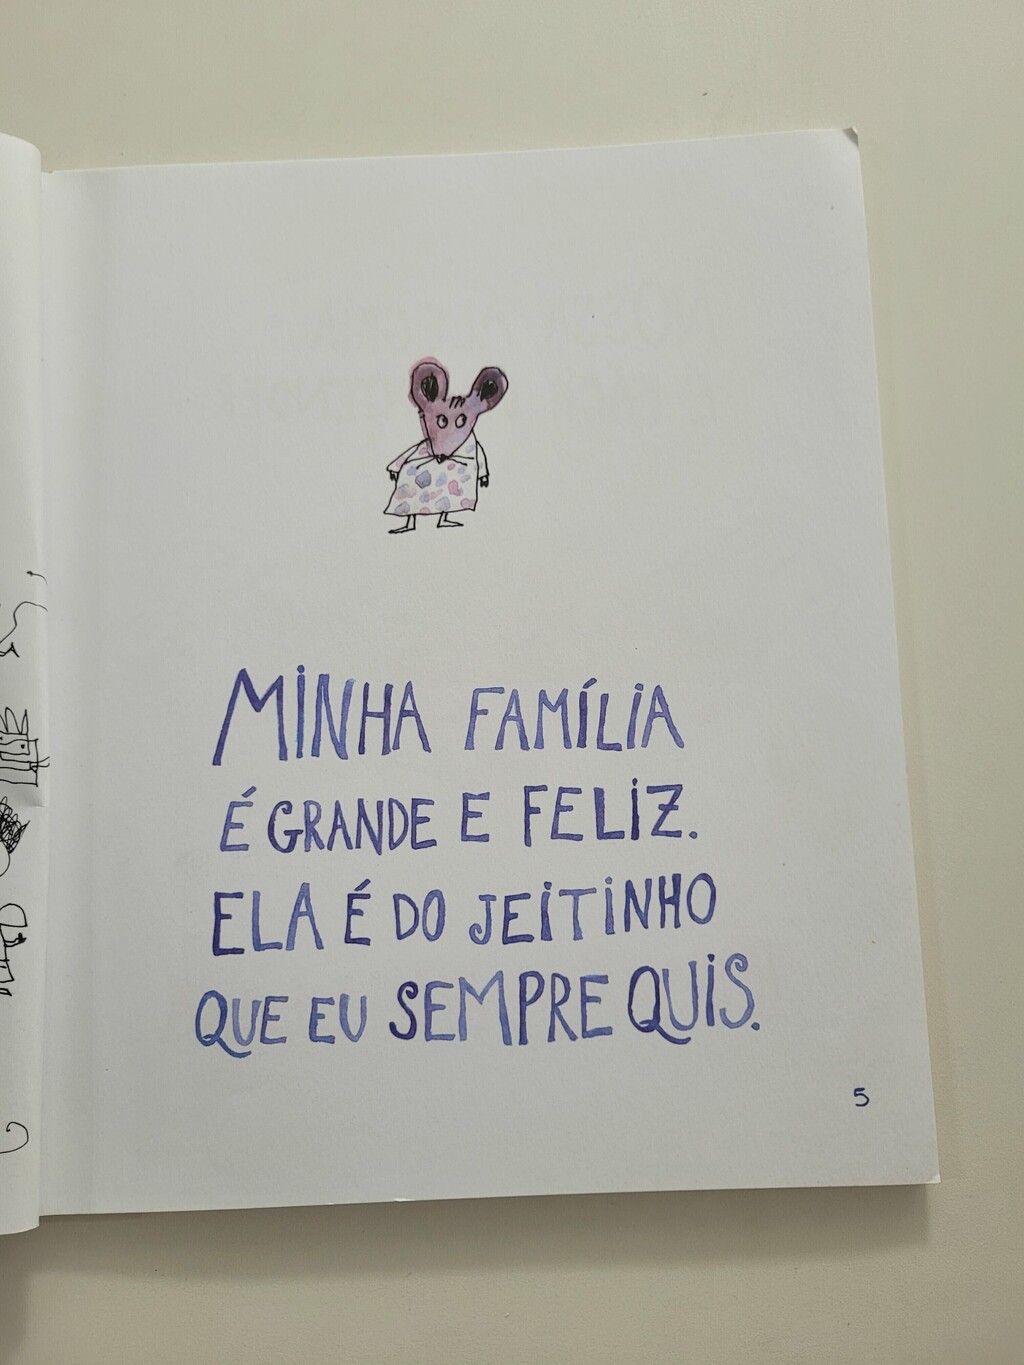 MINHA FAMÍLIA
É GRANDE E FELIZ.
ELA É DO JEITINHO
QUE EU SEMPRE QUIS.
5